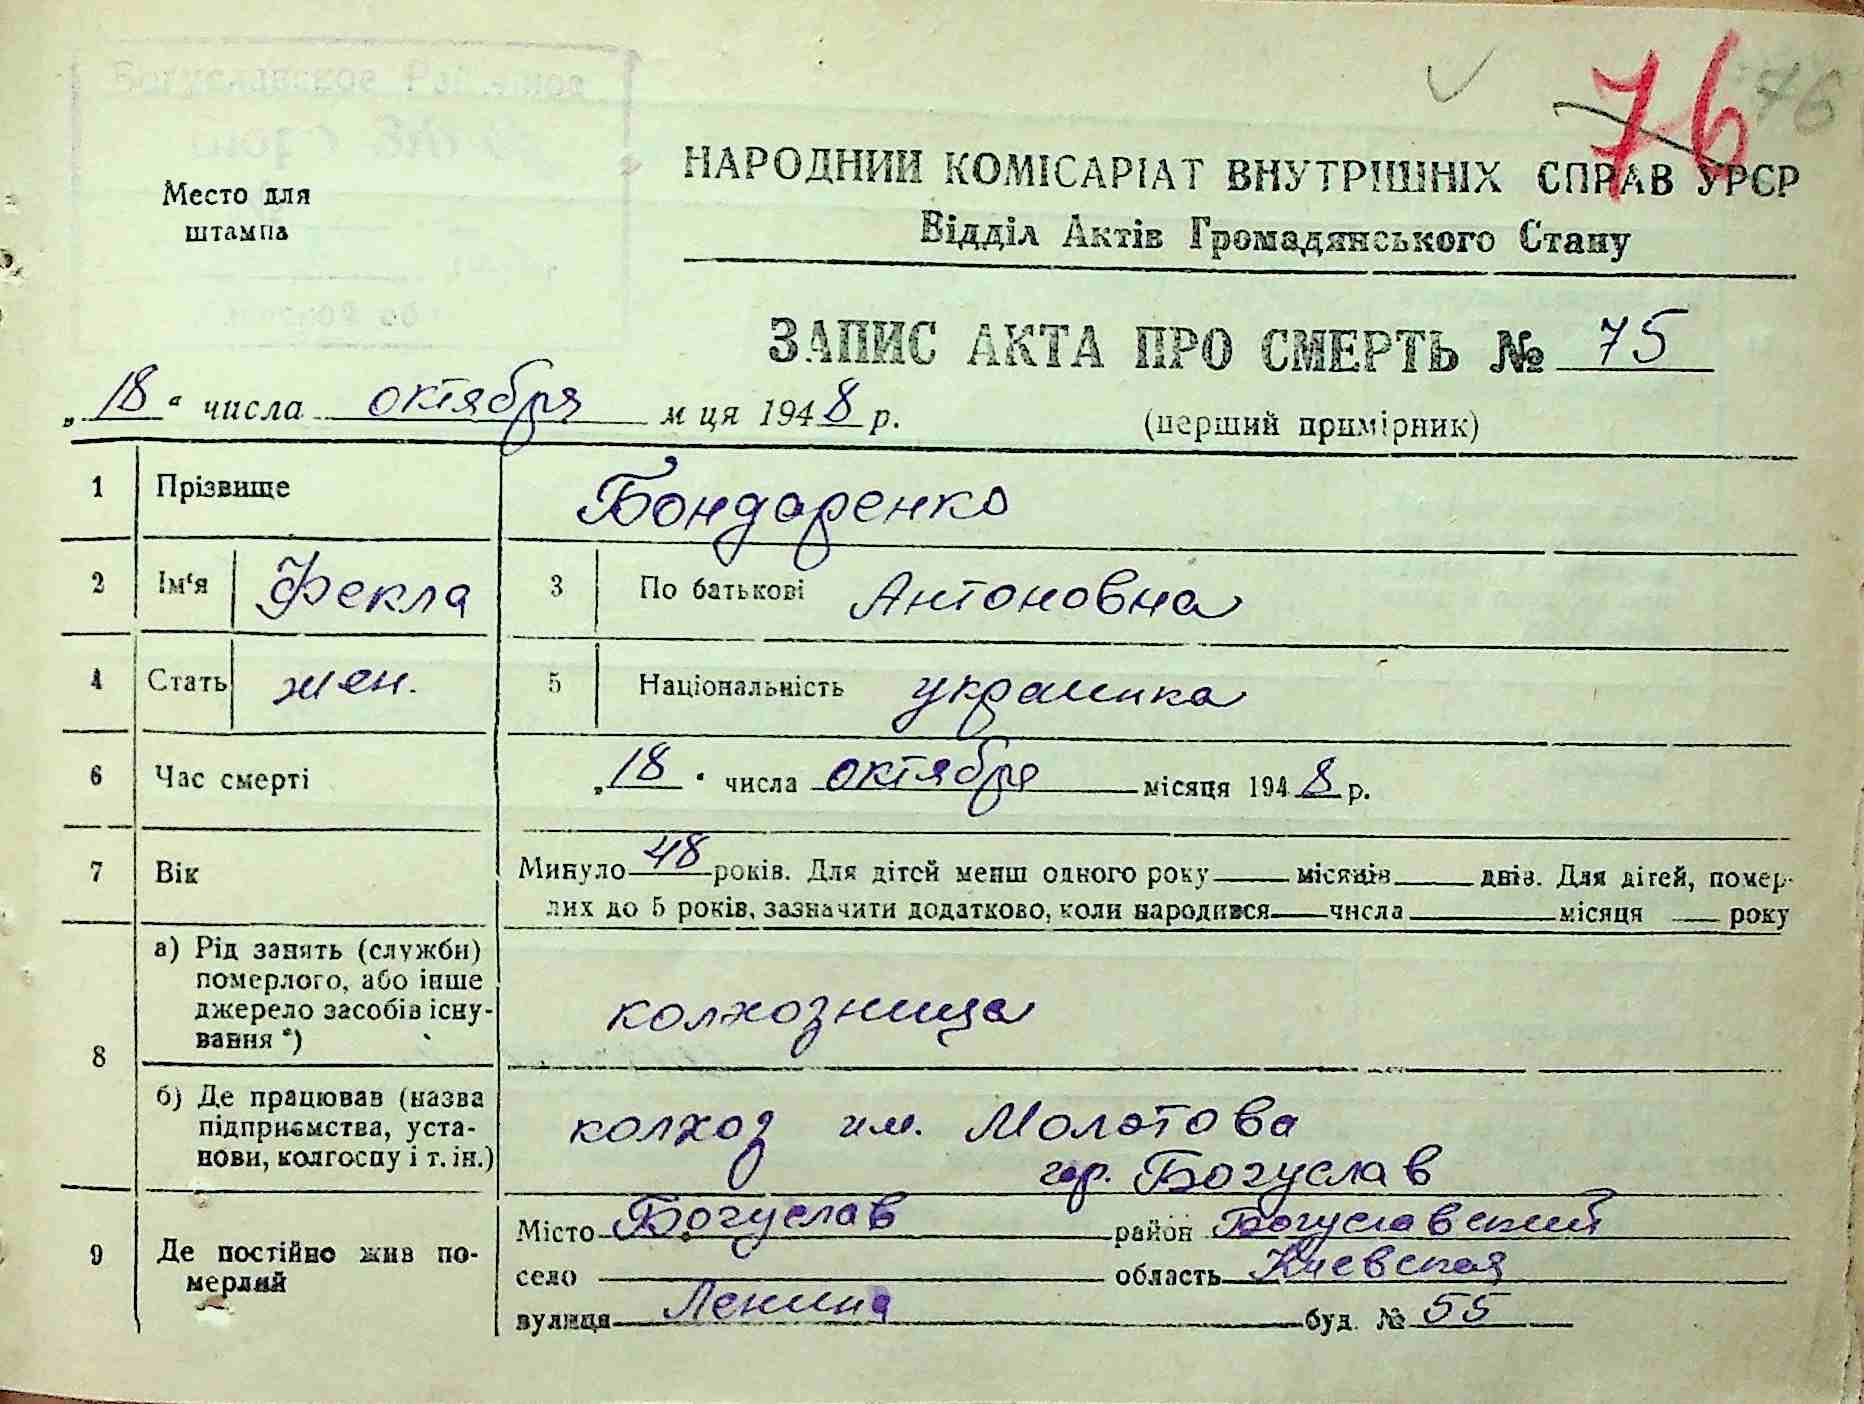 76 76
Место для
штампа
НАРОДНИЙ КОМІСАРІАТ ВНУТРІШНІХ СПРАВ УРСР
Відділ Актів Громадянського Стану
ЗАПИС АКТА ПРО СМЕРТЬ № 75
„18“ числа октября м ця 1948 р. (перший примірник)
1 Прізвище Бондаренко
2 Ім‘я Фекла 3 По батькові Антоновна
4 Стать жен. 5 Національність украинка
6 Час смерті „18“ числа октября місяця 1948 р.
7 Вік Минуло 48 років. Для дітей менш одного року місяців днів. Для дітей, помер-
лих до 5 років, зазначити додатково, коли народився числа місяця року
8 а) Рід занять (служби)
померлого, або інше
джерело засобів існу-
вання *) колхозница
б) Де працював (назва
підприємства, уста-
нови, колгоспу і т. ін.) колхоз им. Молотова
гор. Богуслав
9 Де постійно жив по-
мерлий
Місто Богуслав район Богуславский
село область Киевская
вулиця Ленина буд. № 55